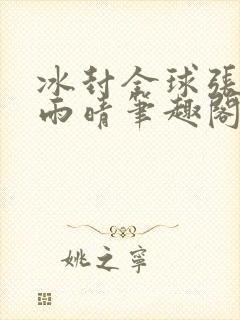 冰封全球張
雨晴筆趣閣
姚之寧